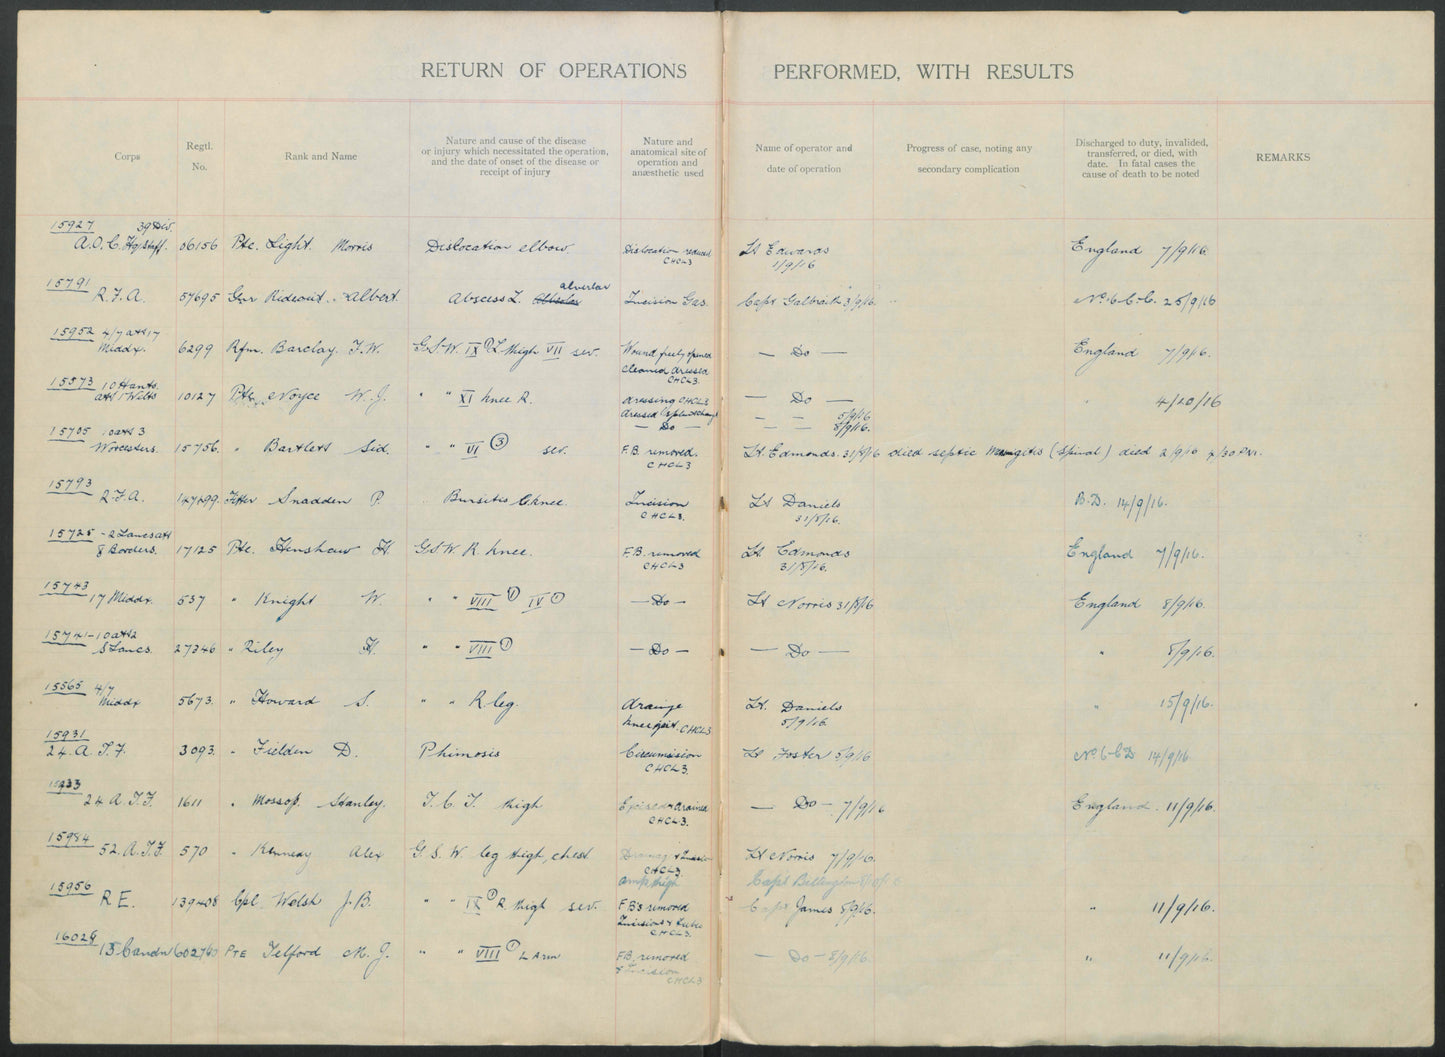 RETURN OF OPERATIONS PERFORMED, WITH RESULTS
Corps
Regtl. No.
Rank and Name
Nature and cause of the disease
or injury which necessitated the operation,
and the date of onset of the disease or
receipt of injury
Nature and
anatomical site of
operation and
anæsthetic used
Name of operator and
date of operation
Progress of case, noting any
secondary complication
Discharged to duty, invalided,
transferred, or died, with
date. In fatal cases the
cause of death to be noted
REMARKS
15927 39 Div.
A.O.C. Hq Staff. 06156 Pte. Light Morris Dislocation elbow. Dislocation reduced Lt Edwards England 7/9/16.
CHCL3 1/9/16
15791 alveolar
R.F.A. 57695 Gnr Rideout. Albert. Abscess L. Incision Gas. Capt Galbraith 3/9/16. No. 6 C.C. 25/9/16
15952 4/7 att 17
Middx. 6299 Rfm. Barclay. F.W. G.S.W. IX 1 L thigh VII sev. Wound freely opened — Do — England 7/9/16.
cleaned dressed
CHCL3.
15573 10 Hants.
att 1 Wilts 10127 Pte Noyce W.J. " " XI knee R. dressing CHCL3 — Do — " 4/20/16
dressed splint change — — 5/9/16
— Do — — — 8/9/16.
15705 10 att 3
Worcesters. 15756. " Bartlett Sid. " " VI 3 sev. F.B. removed. Lt. Edmonds. 31/8/16 died septic (Spinal) died 2/9/16 4/30 P.M.
CHCL3
15793
R.F.A. 147499. Fitter Snadden P. Bursitis knee. Incision Lt Daniels B.D. 14/9/16.
CHCL3. 31/8/16.
15725 - 2 Lancs att
8 Borders. 17125 Pte. Henshaw H. G.S.W. R. knee. F.B. removed Lt. Edmonds England 7/9/16.
CHCL3 31/8/16.
15743
17 Middx. 537 " Knight W. " " VIII 1 IV 1 — Do — Lt Norris 31/8/16 England 8/9/16.
15741 - 10 att 2
S Lancs. 27346 " Riley H. " " VIII 1 — Do — — Do — " 8/9/16.
15565 4/7
Middx 5673. " Howard S. " " R leg. drainage Lt. Daniels " 15/9/16.
knee joint. CHCL3 5/9/16
15931
24. A. F.F. 3093. " Fielden D. Phimosis Circumcision Lt Foster 5/9/16 No. 6 C D 14/9/16
CHCL3.
15933
24 A. F.F. 1611 " Mossop. Stanley. I.C.T. thigh drained — Do — 7/9/16 England. 11/9/16.
CHCL3.
15984
52. A. F.F. 570 " Kennedy Alex G.S.W. leg thigh, chest Lt Norris 7/9/16.
CHCL3.
15956 amp thigh Capt Billington
R E. 139408 Cpl. Welsh J.B. " " IX 1 R thigh sev. F.B's removed Capt James 8/9/16. " 11/9/16.
Incisions & tubes
CHCL3.
16029
13 Candn 602760 PTE Telford M.J. " " VIII 1 L Arm F.B. removed — Do — 8/9/16. " 11/9/16.
& Incision
CHCL3